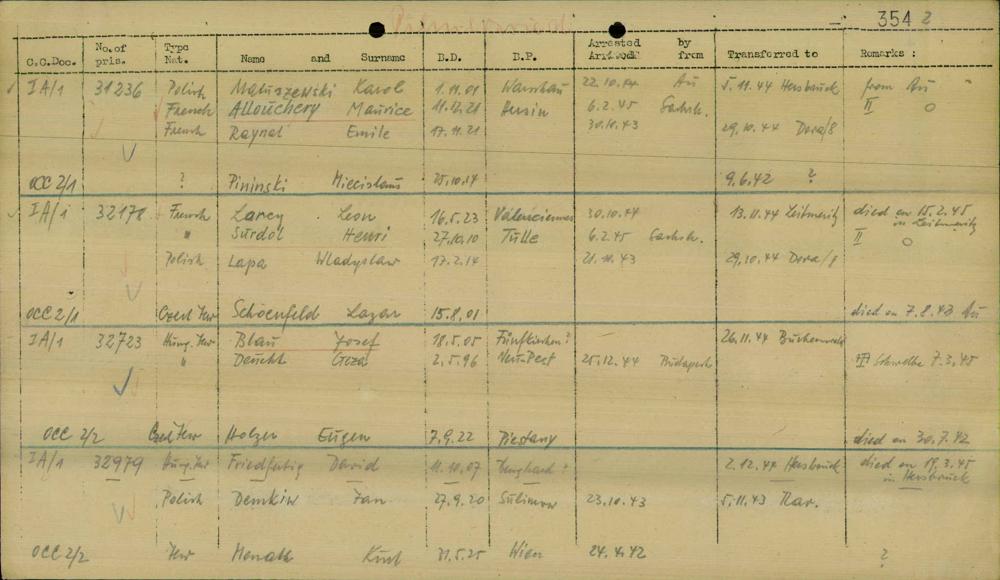 354 2
C.C.Doc. No. of pris. Type Nat. Name and Surname B.D. B.P. Arrested by from Transferred to Remarks :
IA/1 31236 Polish Matuszewski Karol 1.11.01 Warschau 22.10.44 Au 5.11.44 Hersbruck from Au
French Allouchery Maurice 11.12.21 Hersin 6.2.45 Sachsh. II O
French Raynal Emile 17.11.21 30.10.43 29.10.44 Dora/8
OCC 2/1 ? Pininski Miecislaus 25.10.14 9.6.42 ?
IA/1 32178 French Larcy Leon 16.5.23 Valenciennes 30.10.44 13.11.44 Leitmeritz died on 15.2.45
in Leitmeritz
" Surdol Henri 27.10.10 Tulle 6.2.45 Sachsh. II O
Polish Lapa Wladyslaw 17.2.14 21.11.43 29.10.44 Dora/8
OCC 2/1 Czech Jew Schoenfeld Lazar 15.8.01 died on 7.8.43 Au
IA/1 32723 Hung. Jew Blau Josef 18.5.05 Fünfkirchen? 26.11.44 Buchenwald
" Deucht Geza 2.5.96 Neu-Pest 25.12.44 Budapest III Schwelbe 7.3.45
OCC 2/2 Czech Jew Holzer Eugen 7.9.22 Piestany died on 30.7.42
IA/1 32979 Hung. Jew Friedfertig David 11.10.07 2.12.44 Hersbruck died on 19.3.45
in Hersbruck
Polish Demkiw Jan 27.9.20 23.10.43 5.11.43 Nav.
OCC 2/2 Jew Kurt 31.5.25 Wien 24.4.42 ?